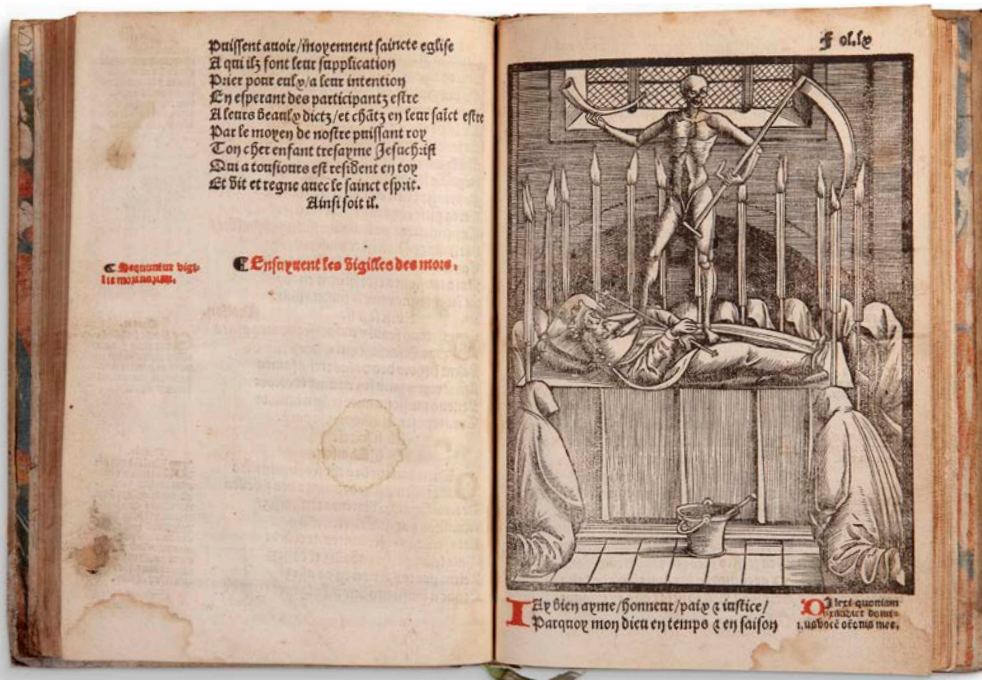 Puissent auoir/moyennent saincte eglise
A qui ilz font leur supplication
Prier pour eulx/a leur intention
En esperant des participantz estre
A leurs beaulx dictz/et châtz en leur saîct estre
Par le moyen de nostre puissant roy
Ton cher enfant tresayme Jesuchrist
Qui a tousiours est resident en toy
Et vit et regne auec le sainct esprit.
Ainsi soit il.
Sequuntur vigi-
lie
Ensuyuent les vigilles des mors.
Fol.lx
IAy bien ayme/honneur/paix & iustice/
Parquoy mon dieu en temps & en saison
DIlexi quoniam
exaudiet domi-
mee.